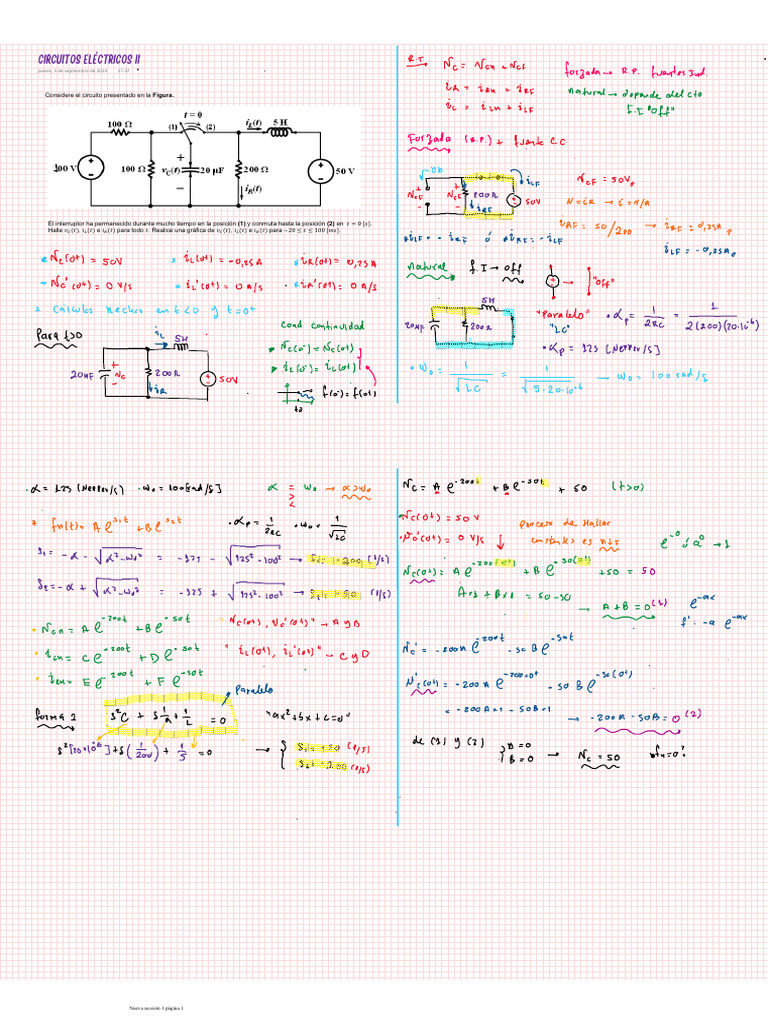 CIRCUITOS ELÉCTRICOS II
jueves, 5 de septiembre de 2024 17:37
Considere el circuito presentado en la Figura.
t = 0
100 Ω
(1)
(2)
i_L(t)
5 H
100 V
100 Ω
v_C(t)
20 μF
200 Ω
50 V
i_R(t)
El interruptor ha permanecido durante mucho tiempo en la posición (1) y conmuta hasta la posición (2) en t = 0 [s].
Halle v_C(t), i_L(t) e i_R(t) para todo t. Realice una gráfica de v_C(t), i_L(t) e i_R(t) para −20 ≤ t ≤ 100 [ms].
Nc(0+) = 50V
iL(0+) = -0,25A
iR(0+) = 0,25A
Nc'(0+) = 0 V/s
iL'(0+) = 0 A/s
iR'(0+) = 0 A/s
Calculos hechos en t<0 y t=0+
Para t>0
iL
5H
20uF
Nc
200Ω
iR
50V
Cond continuidad
Nc(0-) = Nc(0+)
iL(0-) = iL(0+)
f(0-) = f(0+)
to
R.T
Nc = Ncn + NcF
iR = iRn + iRF
iL = iLn + iLF
forzada → R.P. fuentes Ind.
natural → depende del cto
F.I "Off"
Forzada (R.P.) + fuente C.C
0A
NcF
NcF
200Ω
iRF
iLF
50V
NcF = 50V
N = iR → i = N/R
NRF = 50/200 → iRF = 0,25A
iLF = -0,25A
iLF = -iRF ó iRF = -iLF
natural
F.I → off
"off"
5H
20uF
200Ω
"Paralelo"
"LC"
αp = 1/2RC = 1/2(200)(20·10^-6)
αp = 125 [Neper/s]
ωo = 1/√LC = 1/√5·20·10^-6 → ωo = 100 rad/s
α = 125 [Neper/s] ωo = 100[rad/s]
α = ωo → α>ωo
>
<
* fn(t) = A e^s1t + B e^s2t
αp = 1/2RC ωo = 1/√LC
S1 = -α - √α²-ωo² = -125 - √125²-100² → S1 = -200 (1/s)
S2 = -α + √α²-ωo² = -125 + √125²-100² → S2 = -50 (1/s)
Ncn = A e^-200t + B e^-50t
"Nc(0+), Nc'(0+)" → A y B
iLn = C e^-200t + D e^-50t
"iL(0+), iL'(0+)" → C y D
iRn = E e^-200t + F e^-50t
Paralelo
forma 2
S²C + S 1/R + 1/L = 0
"ax²+bx+c=0"
S²[20×10^-6] + S(1/200) + 1/5 = 0
S1 = -50 (1/s)
S2 = -200 (1/s)
Nc = A e^-200t + B e^-50t + 50 (t>0)
Nc(0+) = 50 V
Nc'(0+) = 0 V/s
proceso de Hallar
constantes es n+F
e^-0 ó a^0 → 1
Nc(0+) = A e^-200(0+) + B e^-50(0+) + 50 = 50
A×1 + B×1 = 50-50
→ A+B = 0 (1)
e^-ax
f' = -a e^-ax
Nc' = -200A e^-200t - 50 B e^-50t
Nc'(0+) = -200 A e^-200·0+ - 50B e^-50(0+)
= -200A×1 - 50B×1
→ -200A - 50B = 0 (2)
de (1) y (2)
A=0
B=0
→ Nc = 50
Nueva sección 1 página 1